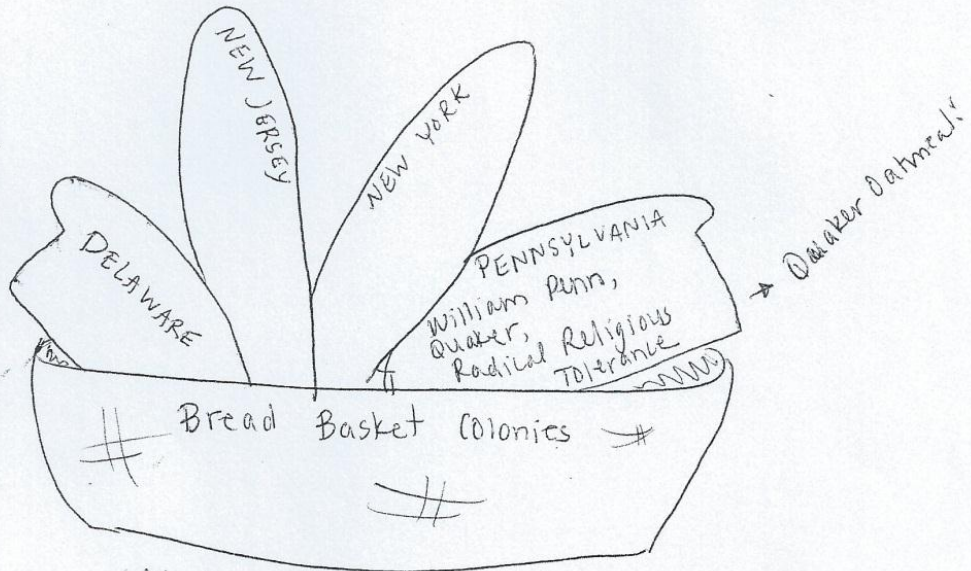 DELAWARE
NEW JERSEY
NEW YORK
PENNSYLVANIA
William Penn,
Quaker,
Radical Religious
Tolerance
Quaker Oatmeal!
Bread Basket Colonies